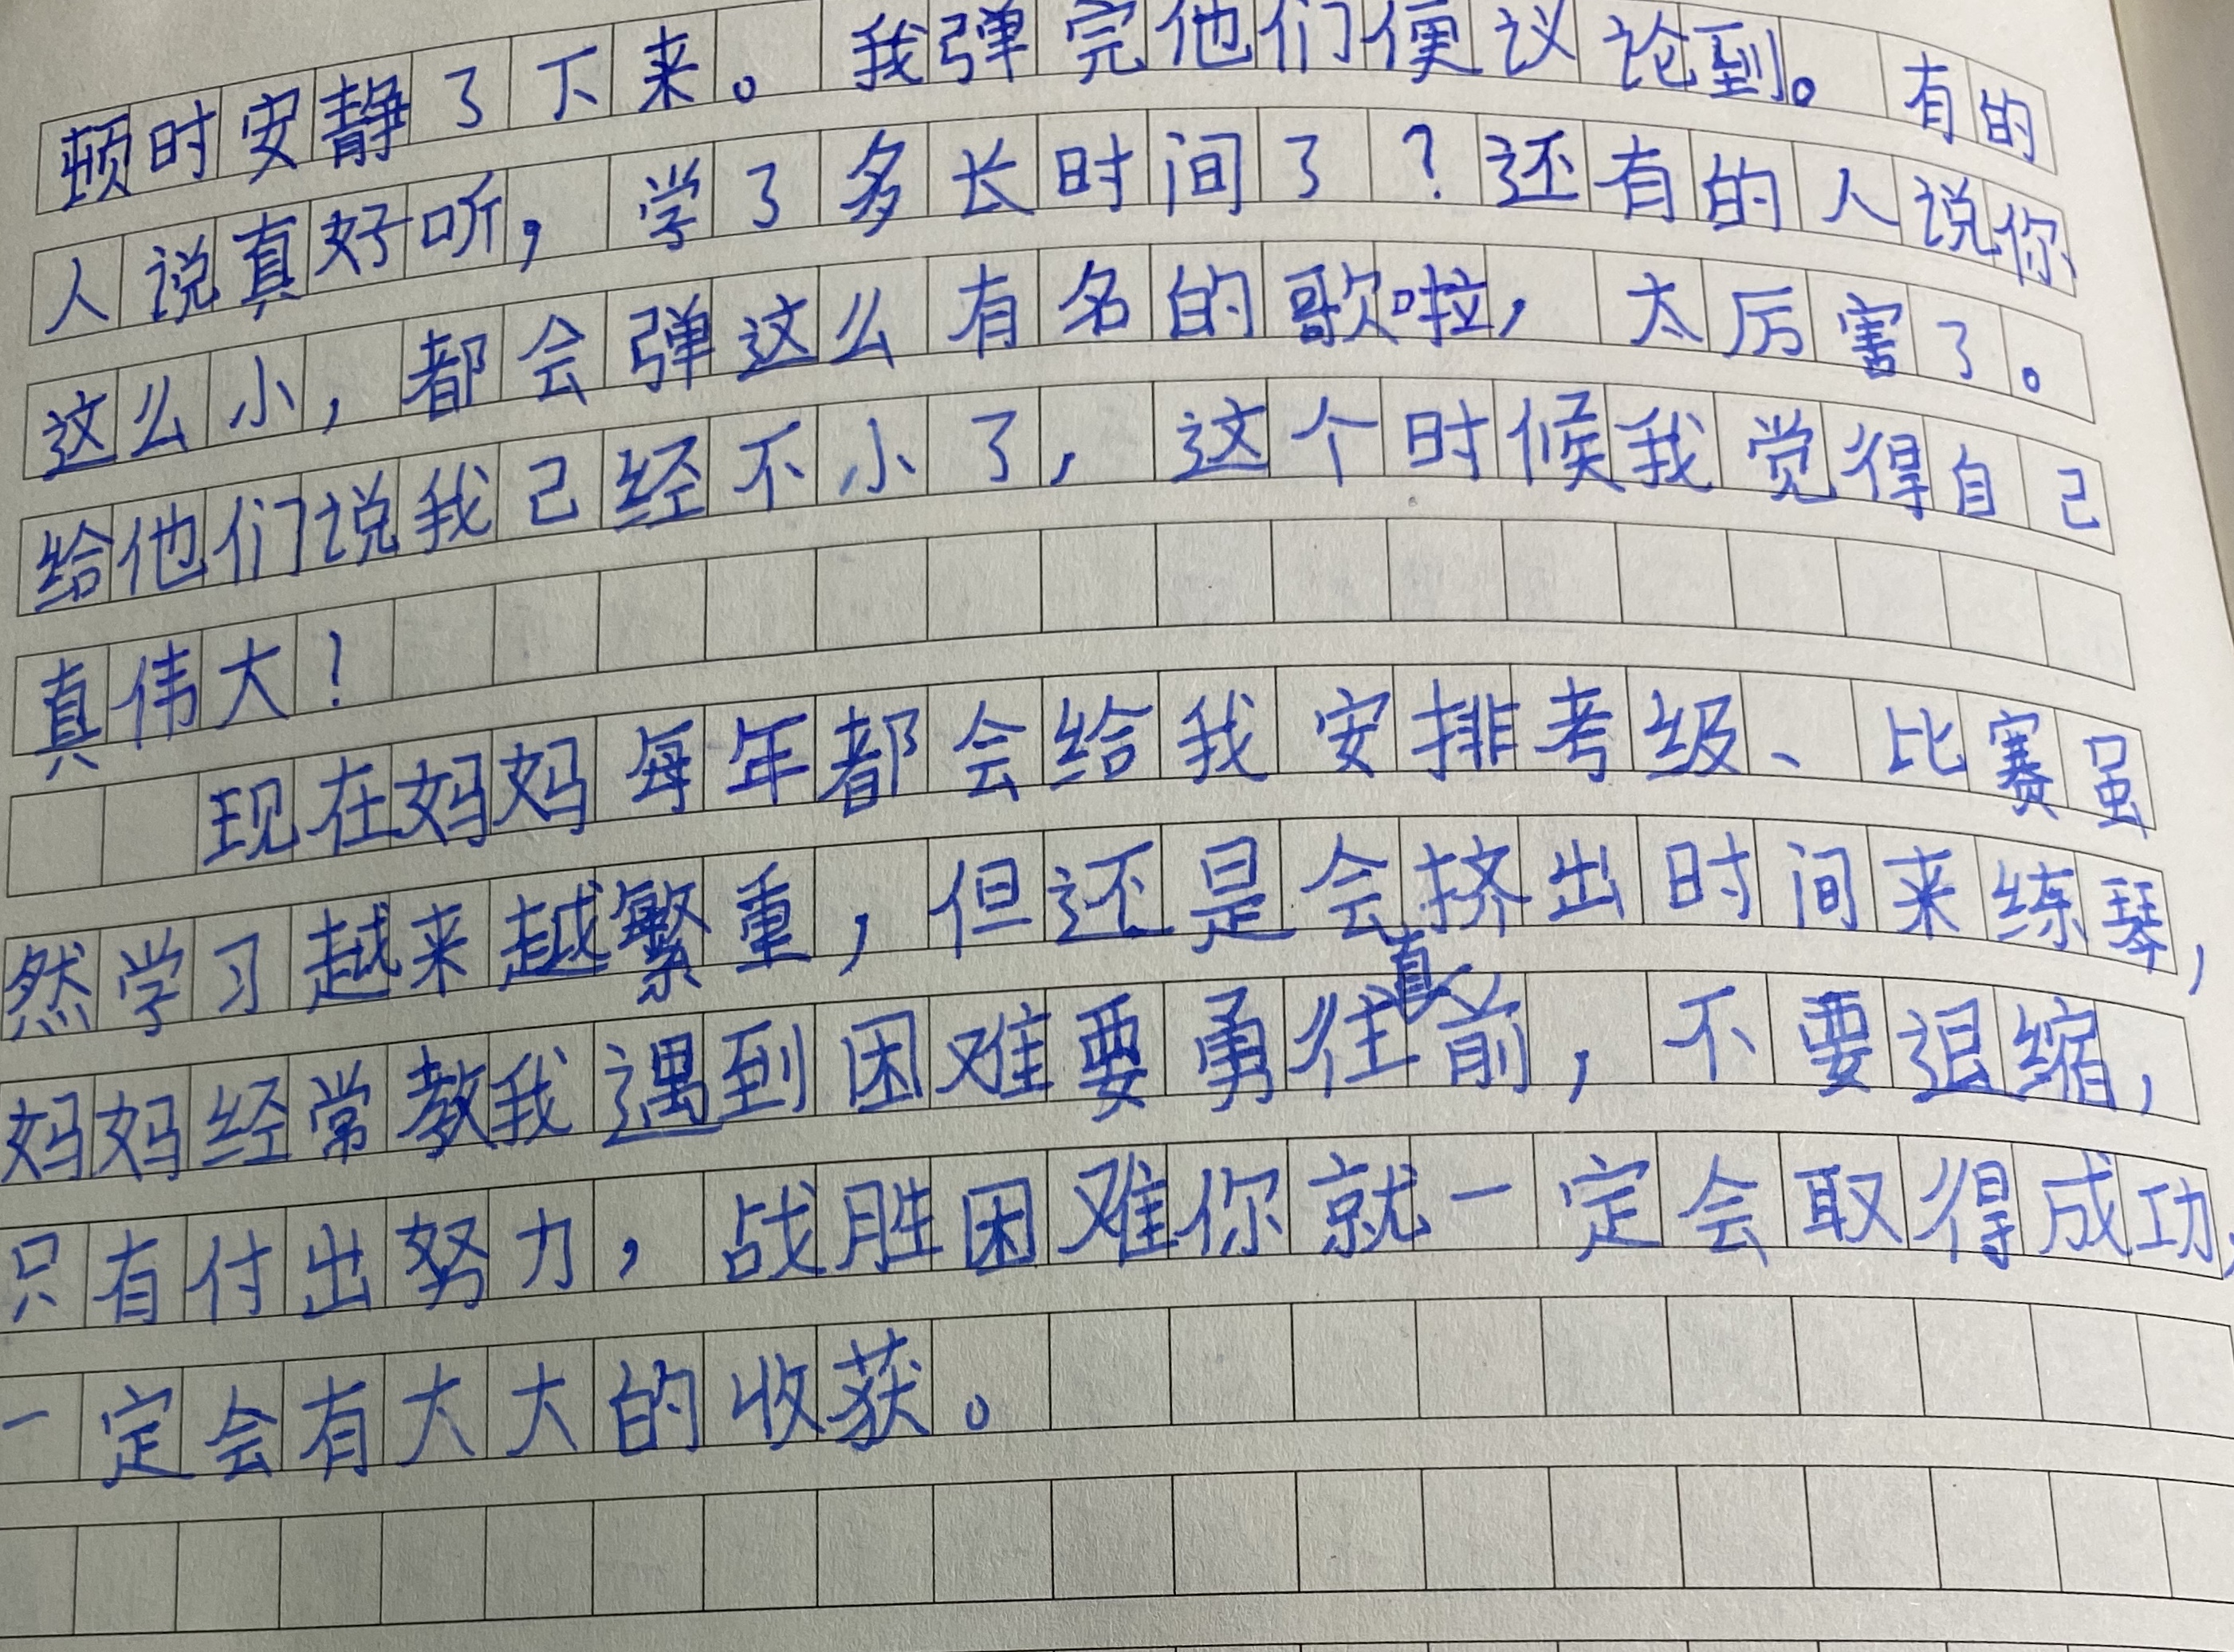 顿时安静了下来。我弹完他们便议论到。有的
人说真好听，学了多长时间了？还有的人说你
这么小，都会弹这么有名的歌啦，太厉害了。
给他们说我己经不小了，这个时候我觉得自己
真伟大！
现在妈妈每年都会给我安排考级、比赛虽
然学习越来越繁重，但还是会挤出时间来练琴，
妈妈经常教我遇到困难要勇往真前，不要退缩，
只有付出努力，战胜困难你就一定会取得成功，
一定会有大大的收获。